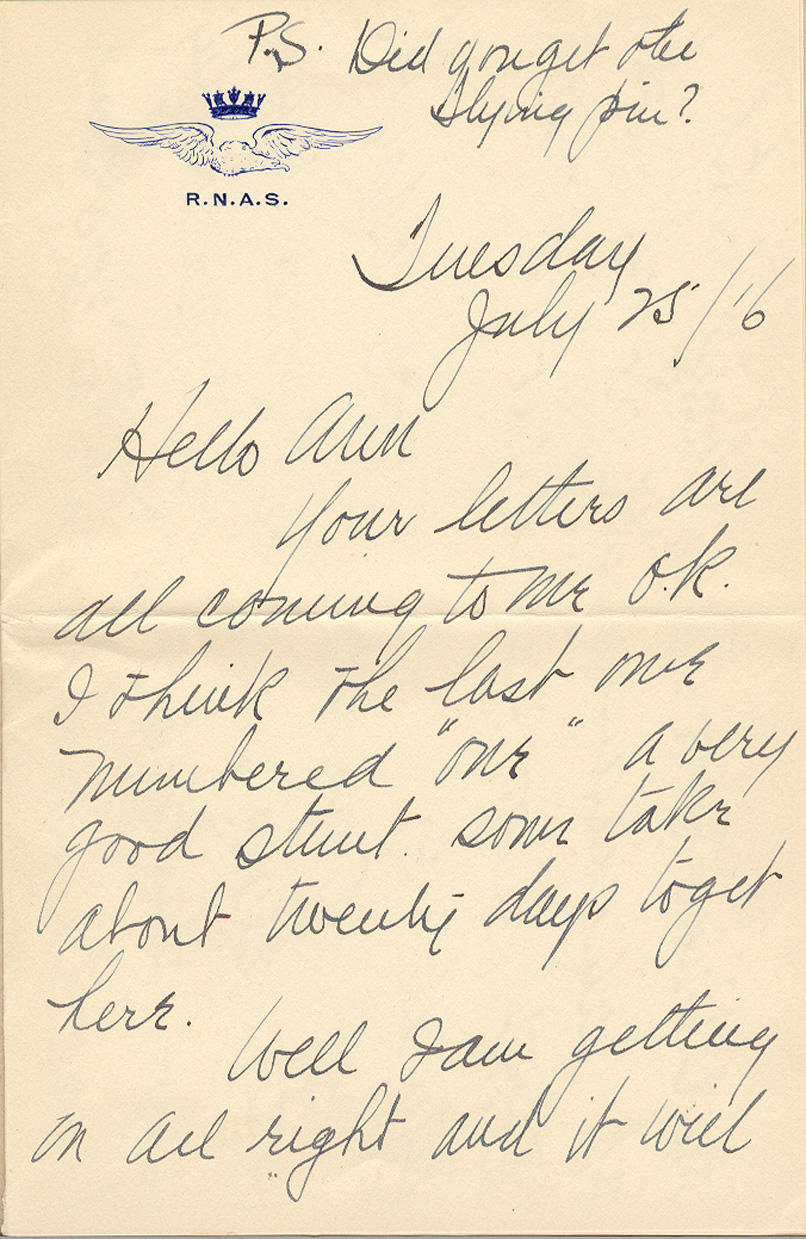 P.S. Did you get the
flying pin?
R.N.A.S.
Tuesday
July 25/16
Hello Ann
Your letters are
all coming to me O.K.
I think the last one
numbered "one" a very
good stunt. some take
about twenty days to get
here.
Well I am getting
on all right and it will